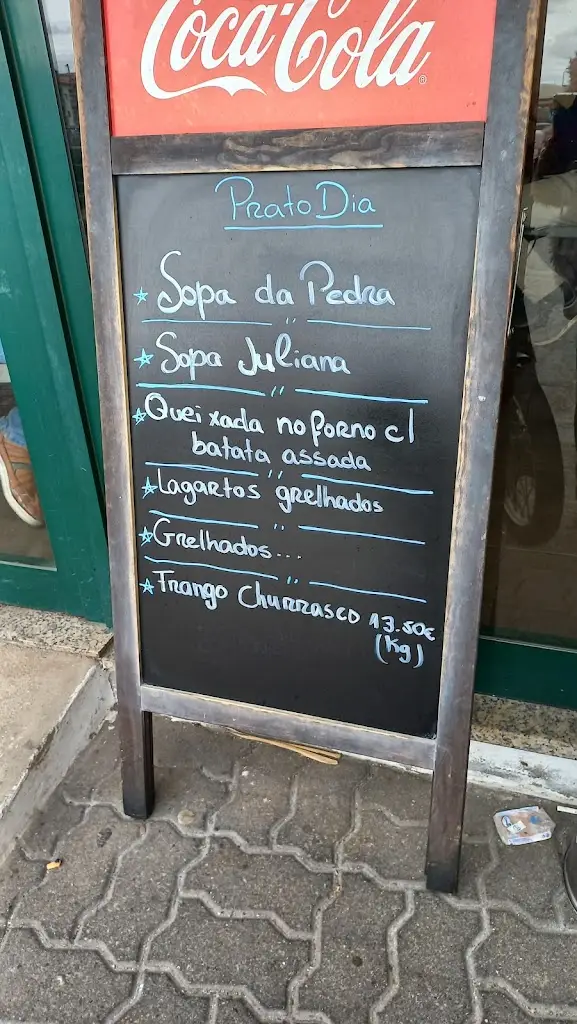 Coca-Cola
Prato Dia
Sopa da Pedra
Sopa Juliana
Queixada no forno c/
batata assada
Lagartos grelhados
Grelhados...
Frango Churrasco 13.50€
(Kg)